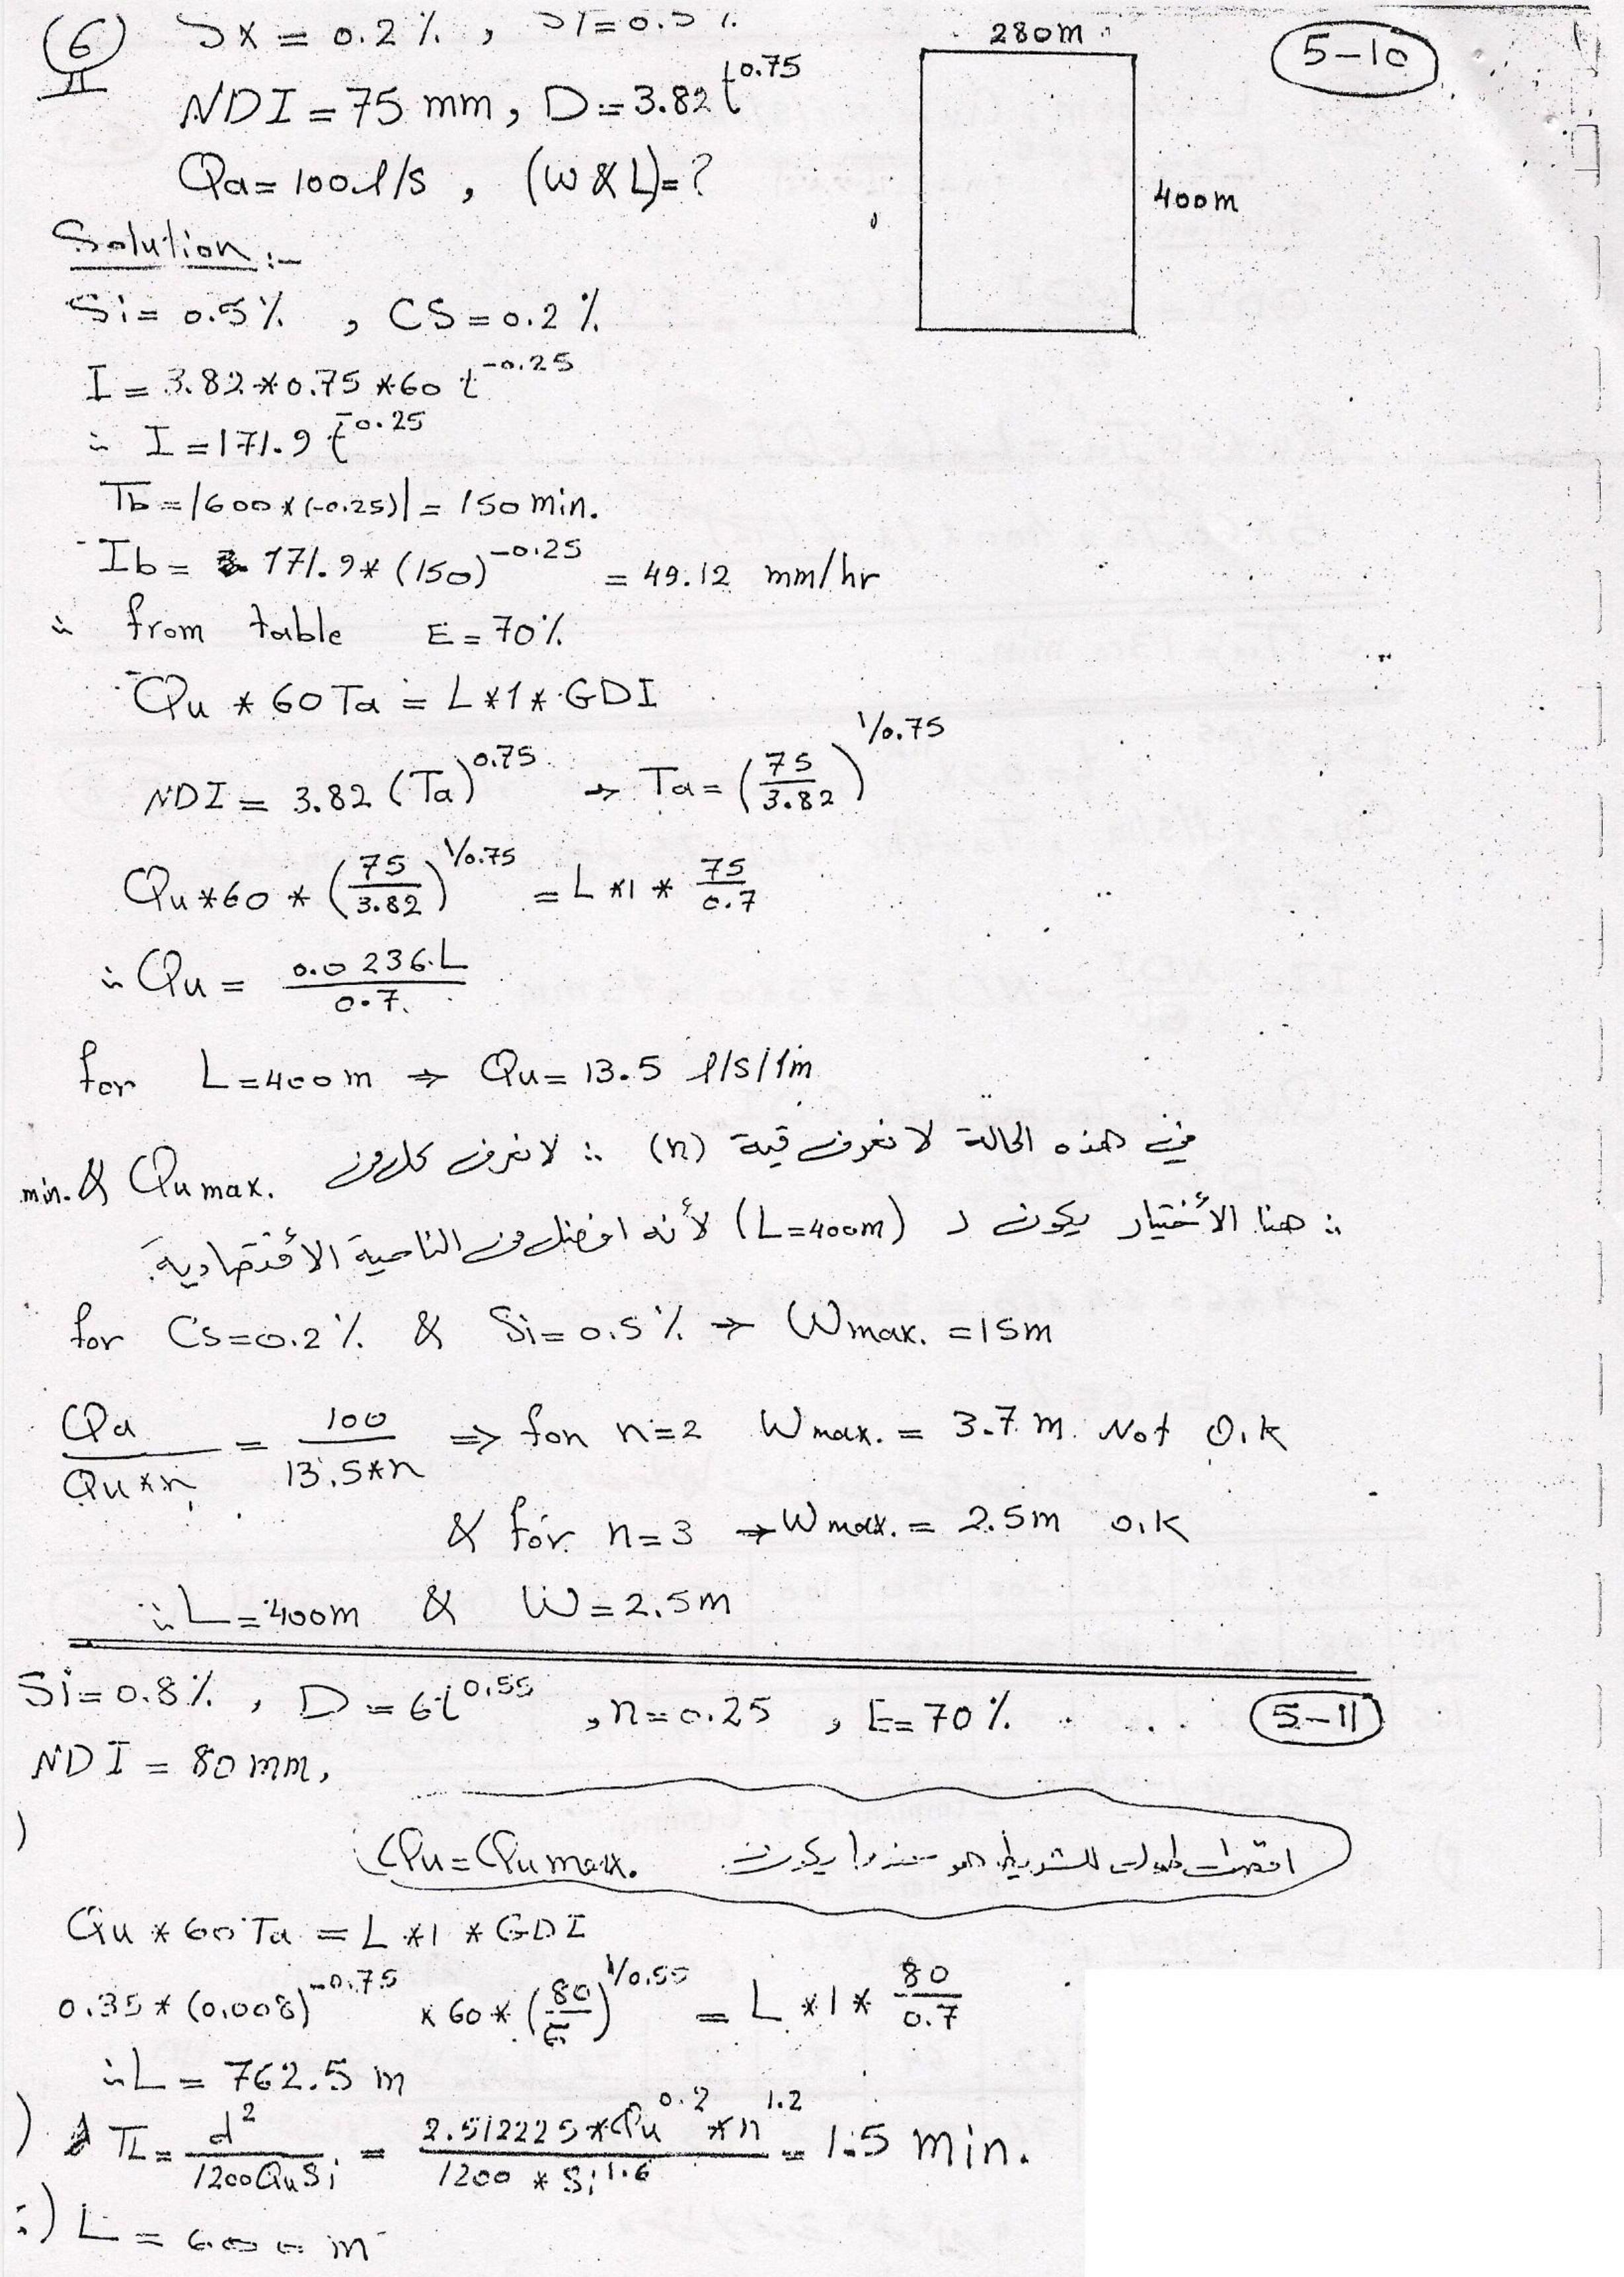 6
II
Sx = 0.2 % , Sy = 0.5 %
280m
5-10
NDI = 75 mm, D = 3.82 t^0.75
Qa = 100 l/s , (W & L) = ?
400m
Solution :-
Si = 0.5 % , CS = 0.2 %
I = 3.82 * 0.75 * 60 t^-0.25
∴ I = 171.9 t^-0.25
Tb = |600 * (-0.25)| = 150 min.
Ib = 171.9 * (150)^-0.25 = 49.12 mm/hr
∴ from table E = 70 %
Qu * 60 Ta = L * 1 * GDI
NDI = 3.82 (Ta)^0.75 → Ta = (75/3.82)^1/0.75
Qu * 60 * (75/3.82)^1/0.75 = L * 1 * 75/0.7
∴ Qu = 0.0236 L / 0.7
for L = 400 m ⇒ Qu = 13.5 l/s/1m
في هذه الحالة لا نعرف قيمة (n) ∴ لا نعرف كل من
min. & Qu max.
∴ هنا الأختيار يكون لـ (L = 400m) لأنه افضل من الناحية الأقتصادية
for CS = 0.2 % & Si = 0.5 % → Wmax. = 15m
Qa / Qu * n = 100 / 13.5 * n ⇒ for n = 2 Wmax. = 3.7 m. Not O.K
& for n = 3 → Wmax. = 2.5m O.K
∴ L = 400m & W = 2.5m
Si = 0.8 % , D = 6 t^0.55 , n = 0.25 , E = 70 %
5-11
NDI = 80 mm,
)
اقصى طول للشريط هو عندما يكون Qu = Qu max.
Qu * 60 Ta = L * 1 * GDI
0.35 * (0.008)^-0.75 * 60 * (80/6)^1/0.55 = L * 1 * 80/0.7
∴ L = 762.5 m
) TL = d^2 / 1200 Qu Si = 2.512225 * Qu^0.2 * n^1.2 / 1200 * Si^1.6 = 1.5 min.
) L = 600 m